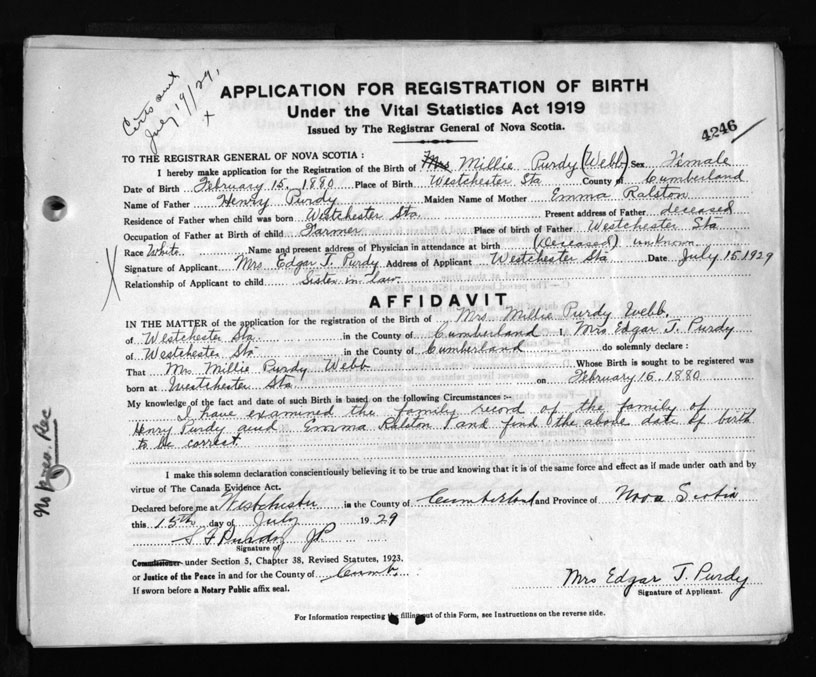 Certs sent
July 19/29,
x
APPLICATION FOR REGISTRATION OF BIRTH
Under the Vital Statistics Act 1919
Issued by The Registrar General of Nova Scotia.
4246
TO THE REGISTRAR GENERAL OF NOVA SCOTIA :
I hereby make application for the Registration of the Birth of Mrs Millie Purdy (Webb) Sex Female
Date of Birth February 15, 1880 Place of Birth Westchester Sta County of Cumberland
Name of Father Henry Purdy Maiden Name of Mother Emma Ralston
Residence of Father when child was born Westchester Sta. Present address of Father deceased
Occupation of Father at Birth of child Farmer Place of birth of Father Westchester Sta
Race White Name and present address of Physician in attendance at birth (Deceased) unknown
Signature of Applicant Mrs. Edgar T. Purdy Address of Applicant Westchester Sta Date July 15, 1929
Relationship of Applicant to child Sister in law
AFFIDAVIT
IN THE MATTER of the application for the registration of the Birth of Mrs Millie Purdy Webb.
of Westchester Sta in the County of Cumberland I, Mrs Edgar T. Purdy
of Westchester Sta in the County of Cumberland do solemnly declare :
That Mrs. Millie Purdy Webb Whose Birth is sought to be registered was
born at Westchester Sta on February 15 1880
My knowledge of the fact and date of such Birth is based on the following Circumstances :-
I have examined the family record of the family of
Henry Purdy and Emma Ralston and find the above date of birth
to be correct.
I make this solemn declaration conscientiously believing it to be true and knowing that it is of the same force and effect as if made under oath and by
virtue of The Canada Evidence Act.
Declared before me at Westchester in the County of Cumberland and Province of Nova Scotia
this 15th day of July 1929
S F Purdy JP
Signature of
Commissioner under Section 5, Chapter 38, Revised Statutes, 1923.
or Justice of the Peace in and for the County of Cumb.
If sworn before a Notary Public affix seal.
Mrs Edgar T. Purdy
Signature of Applicant.
For Information respecting the filling out of this Form, see Instructions on the reverse side.
No prev. Rec